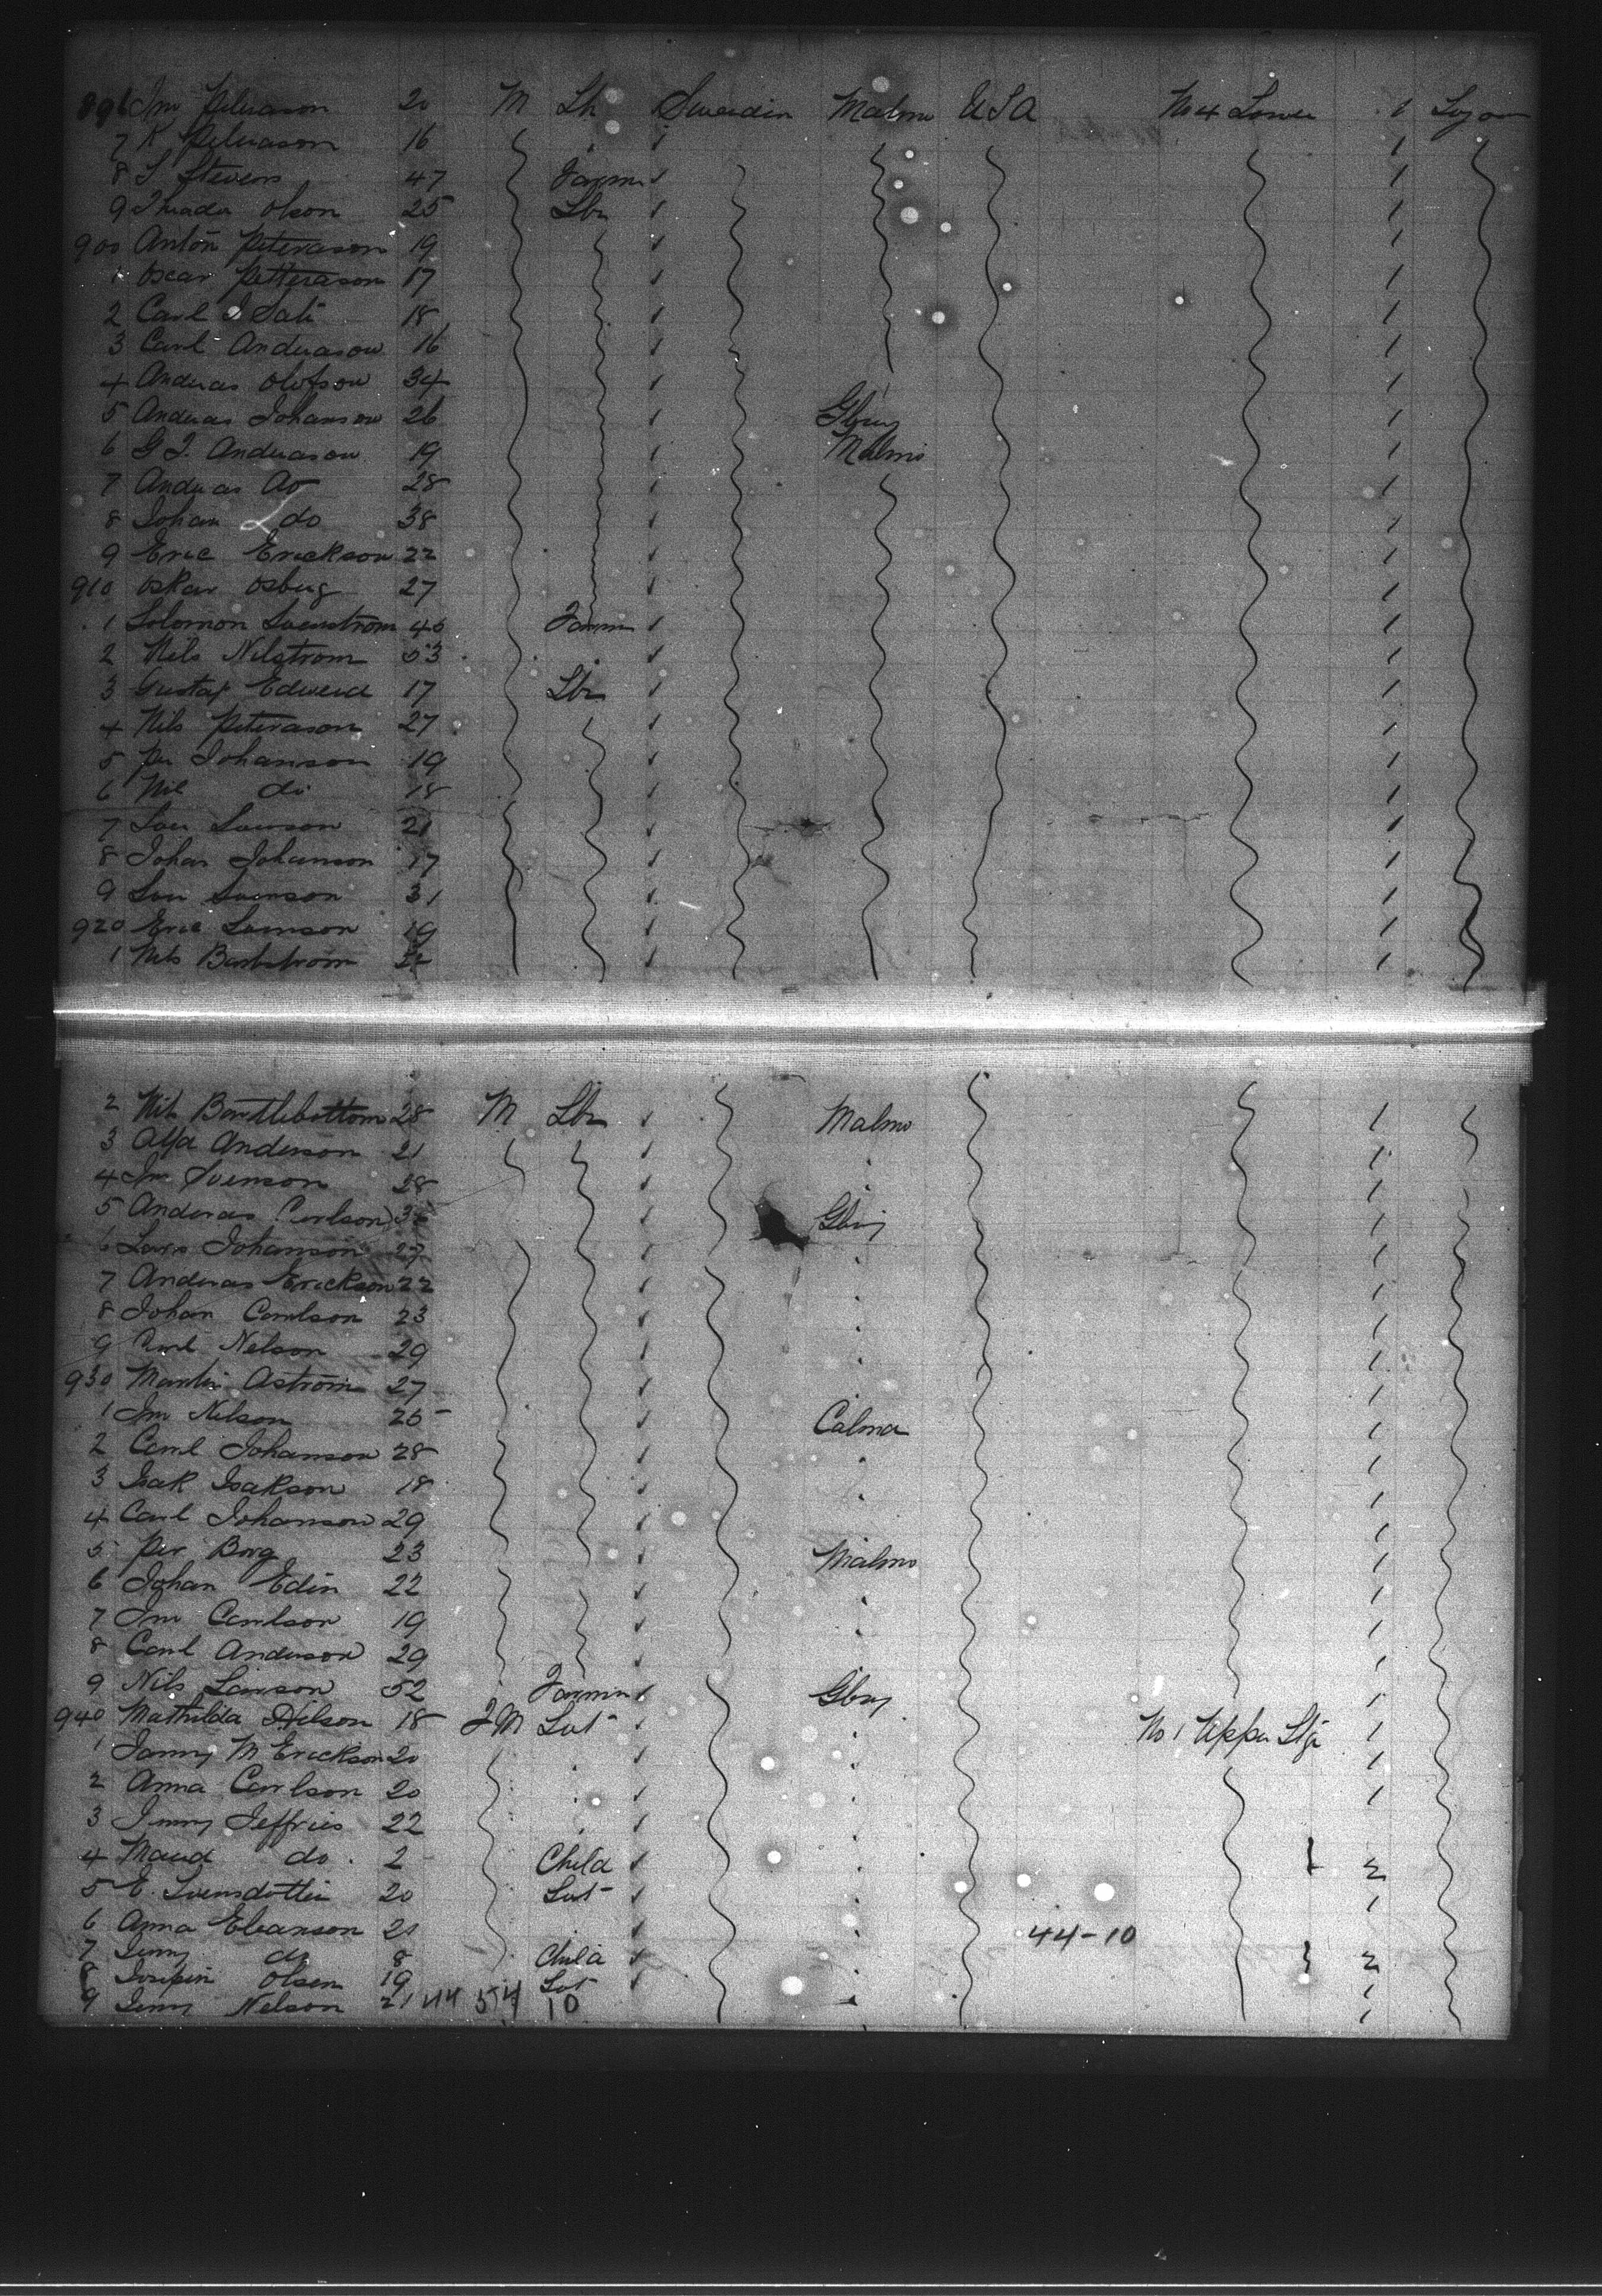 896 Jm Peterason 20 M Lb Sweedin Malmo U S A No 4 Lower 1
7 K Peterason 16 1
8 S Stevens 47 Farm 1
9 Olson 25 Lbr 1
900 Anton Peterason 19
1 Oscar Petterason 17 1
2 Carl 18 1
3 Carl Anderason 16 1
4 Anderas Olofson 34 1
5 Anderas Johanson 26 Gburg 1
6 G J. Anderason 19 Malmo 1
7 Anderas do 28 1
8 Johan do 38 1
9 Eric Erickson 22 1
910 Oskar Osburg 27 1
1 Solomon Svenstrom 40 Farm 1
2 Nils Nilstrom 53 1
3 Gustaf Edward 17 Lbr 1
4 Nils Peterason 27 1
5 Per Johanson 19 1
6 Nil do 18 1
7 21 1
8 Johan Johanson 17 1
9 Sven Svenson 31 1
920 Eric 19 1
1 Nils 1
2 Nils Bartlebottom 28 M Lbr Malmo 1
3 Alfa Anderson 21 1
4 Jm Svenson 28 1
5 Anderas Carlson Gburg 1
6 Lars Johanson 27 1
7 Anderas Erickson 22 1
8 Johan Carlson 23 1
9 Carl Nelson 29 1
930 Martin Astrom 27 1
1 Jm Nilson 25 Calmar 1
2 Carl Johanson 28 1
3 Isak Isakson 18 1
4 Carl Johanson 29 1
5 Per Borg 23 Malmo 1
6 Johan Edin 22 1
7 Jm Carlson 19 1
8 Carl Anderson 29 1
9 Nils Larson 52 Farmer Gburg 1
940 Mathilda Nilson 18 F M Svt No 1 Upper Stge 1
1 Fanny M Erickson 20 1
2 Anna Carlson 20 1
3 Jenny Jeffries 22
4 Maud do 2 Child 1 2
5 E. Svensdotter 20 Svt 1
6 Anna Elvanson 21 44-10
7 Jenny do 8 Child 1 2
8 Josefin Olsen 19 Svt 1
9 Jenny Nelson 21 44 54 10 1